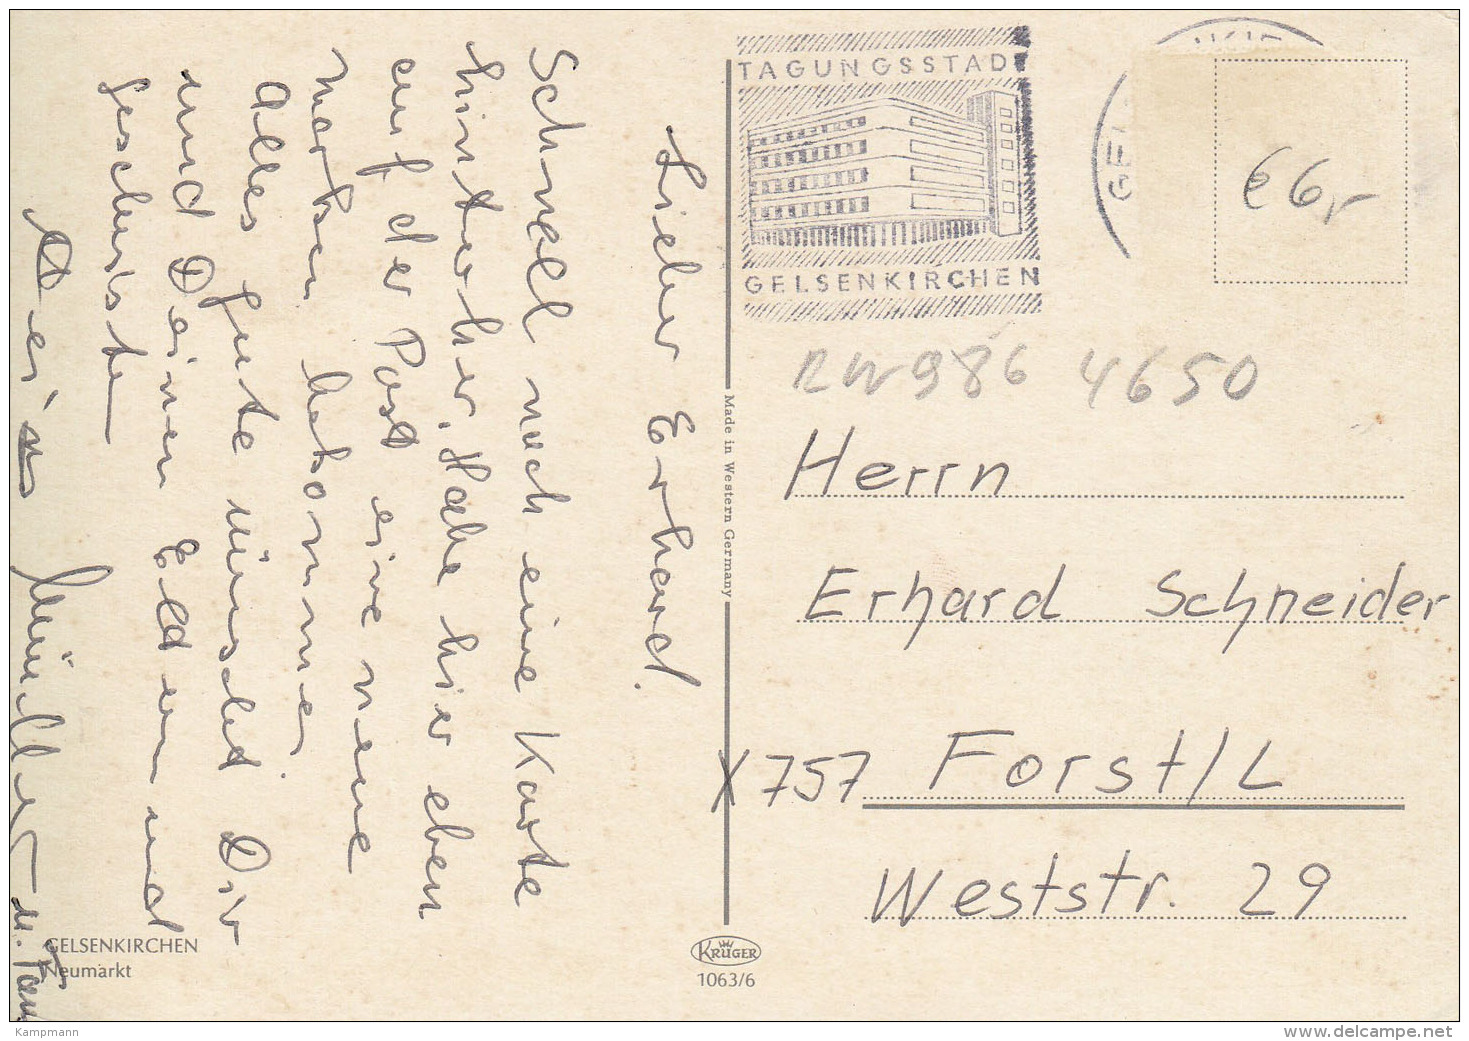 Lieber Erhard.
Schnell noch eine Karte
hinterher, Habe hier eben
auf der Post eine neue
Marken bekommen
Alles gute wünscht Dir
und Deinen Eltern und
Geschwister
Dein
u. Fam
GELSENKIRCHEN
Neumarkt
TAGUNGSSTADT
GELSENKIRCHEN
GEL
€ 6,-
4650
Herrn
Erhard Schneider
X 757 Forst/L
Weststr. 29
Made in Western Germany
KRÜGER
1063/6
Kampmann
www.delcampe.net